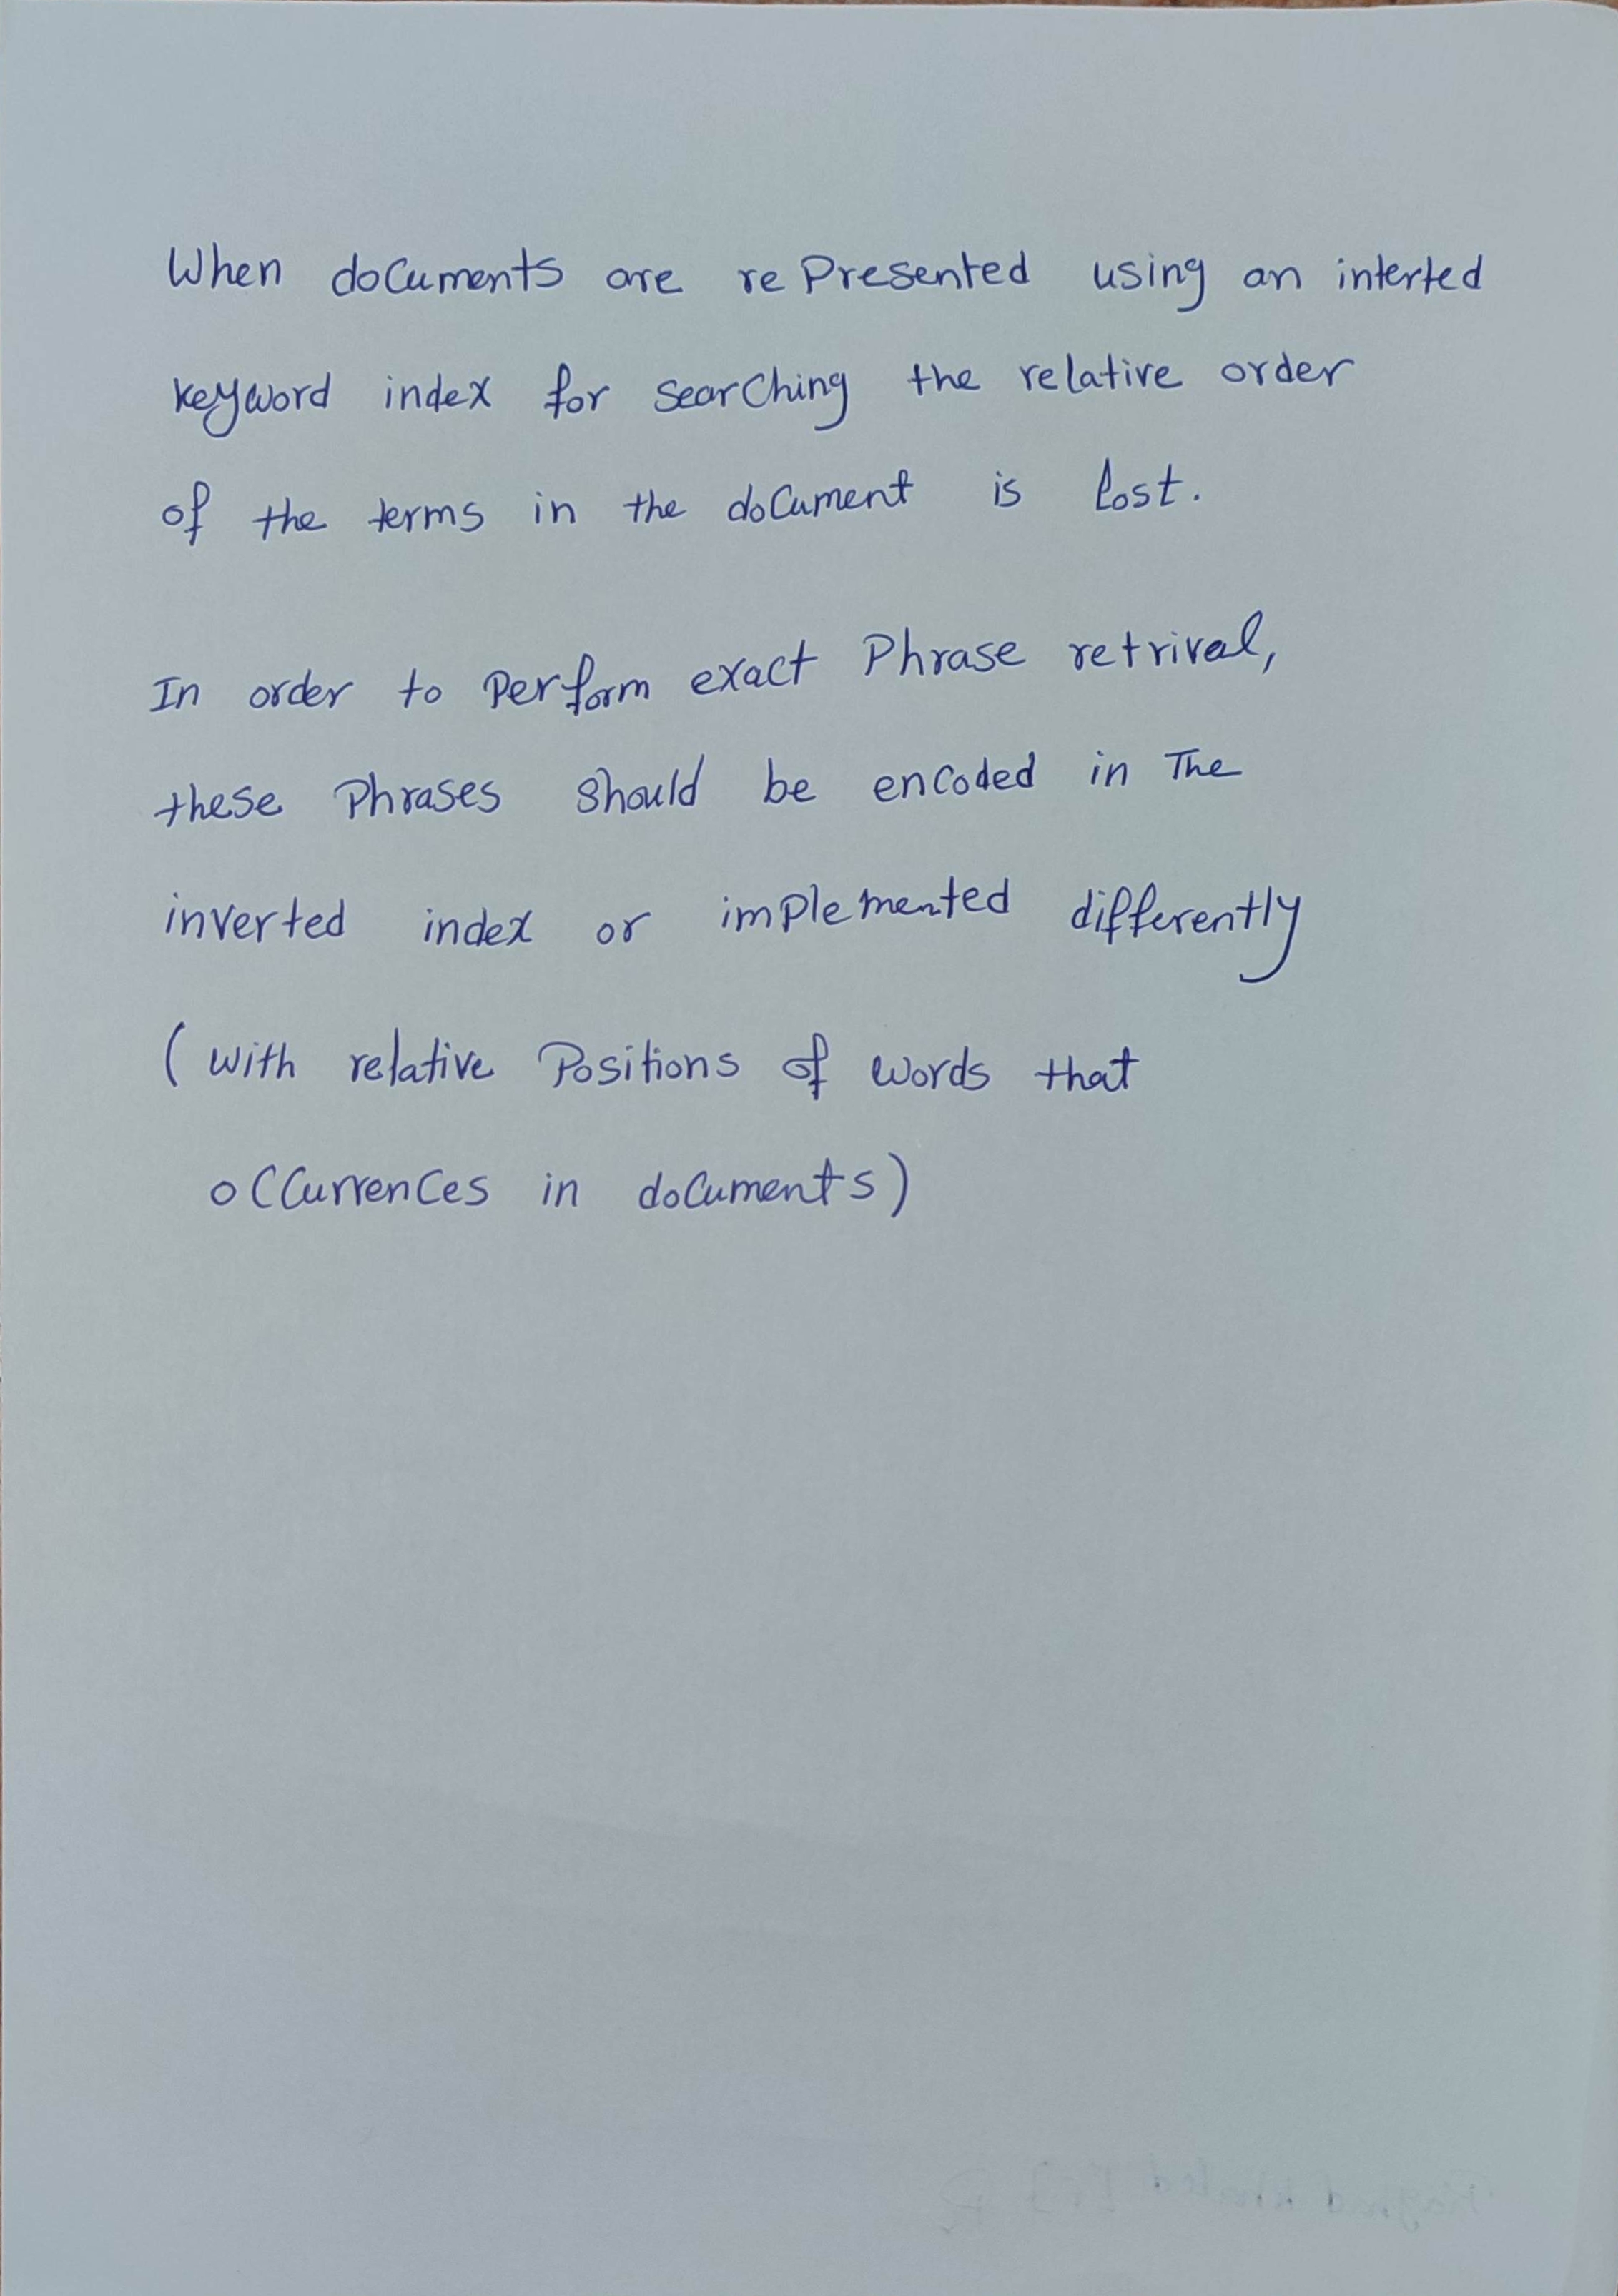 When documents are represented using an interted
keyword index for searching the relative order
of the terms in the document is lost.
In order to Perform exact Phrase retrival,
these Phrases should be encoded in The
inverted index or implemented differently
( with relative Positions of words that
occurrences in documents)